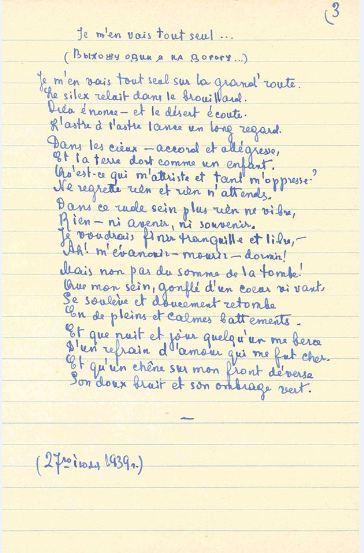 3
Je m'en vais tout seul ...
(Выхожу один я на дорогу...)
Je m'en vais tout seul sur la grand' route.
Le silex reluit dans le brouillard.
Dieu énonce – et le désert écoute.
L'astre à l'astre lance un long regard.
Dans les cieux – accord et allégresse,
Et la terre dort comme un enfant.
Qu'est-ce qui m'attriste et tant m'oppresse?
Ne regrette rien et rien n'attends.
Dans ce rude sein plus rien ne vibre,
Rien – ni avenir, ni souvenir.
Je voudrais finir tranquille et libre, –
Ah! m'évanouir – mourir – dormir!
Mais non pas du somme de la tombe!
Que mon sein, gonflé d'un coeur vivant,
Se soulève et doucement retombe
En de pleins et calmes battements.
Et que nuit et jour quelqu'un me berce
D'un refrain d'amour qui me fut cher.
Et qu'un chêne sur mon front déverse
Son doux bruit et son ombrage vert.
—
(27го июля 1939г.)